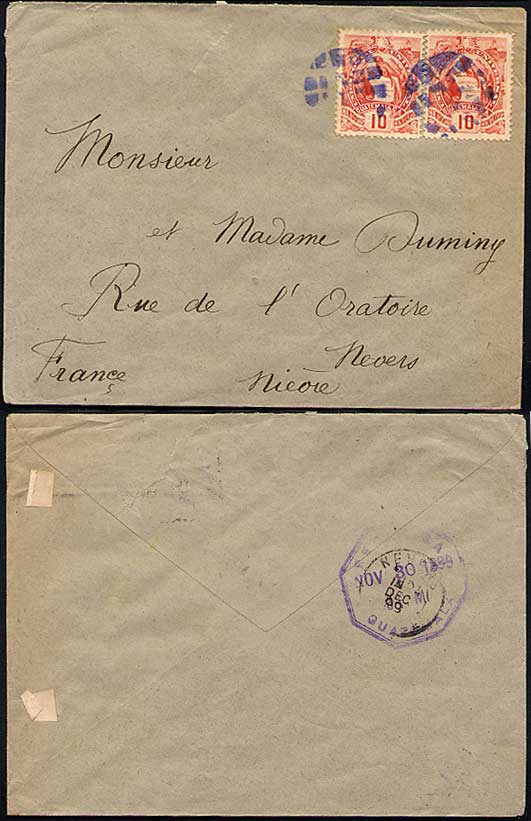 10 10
Monsieur
et Madame Duminy
Rue de l' Oratoire
Nevers
France Nièvre
NOV 30 1889
DEC
89
GUATEMALA